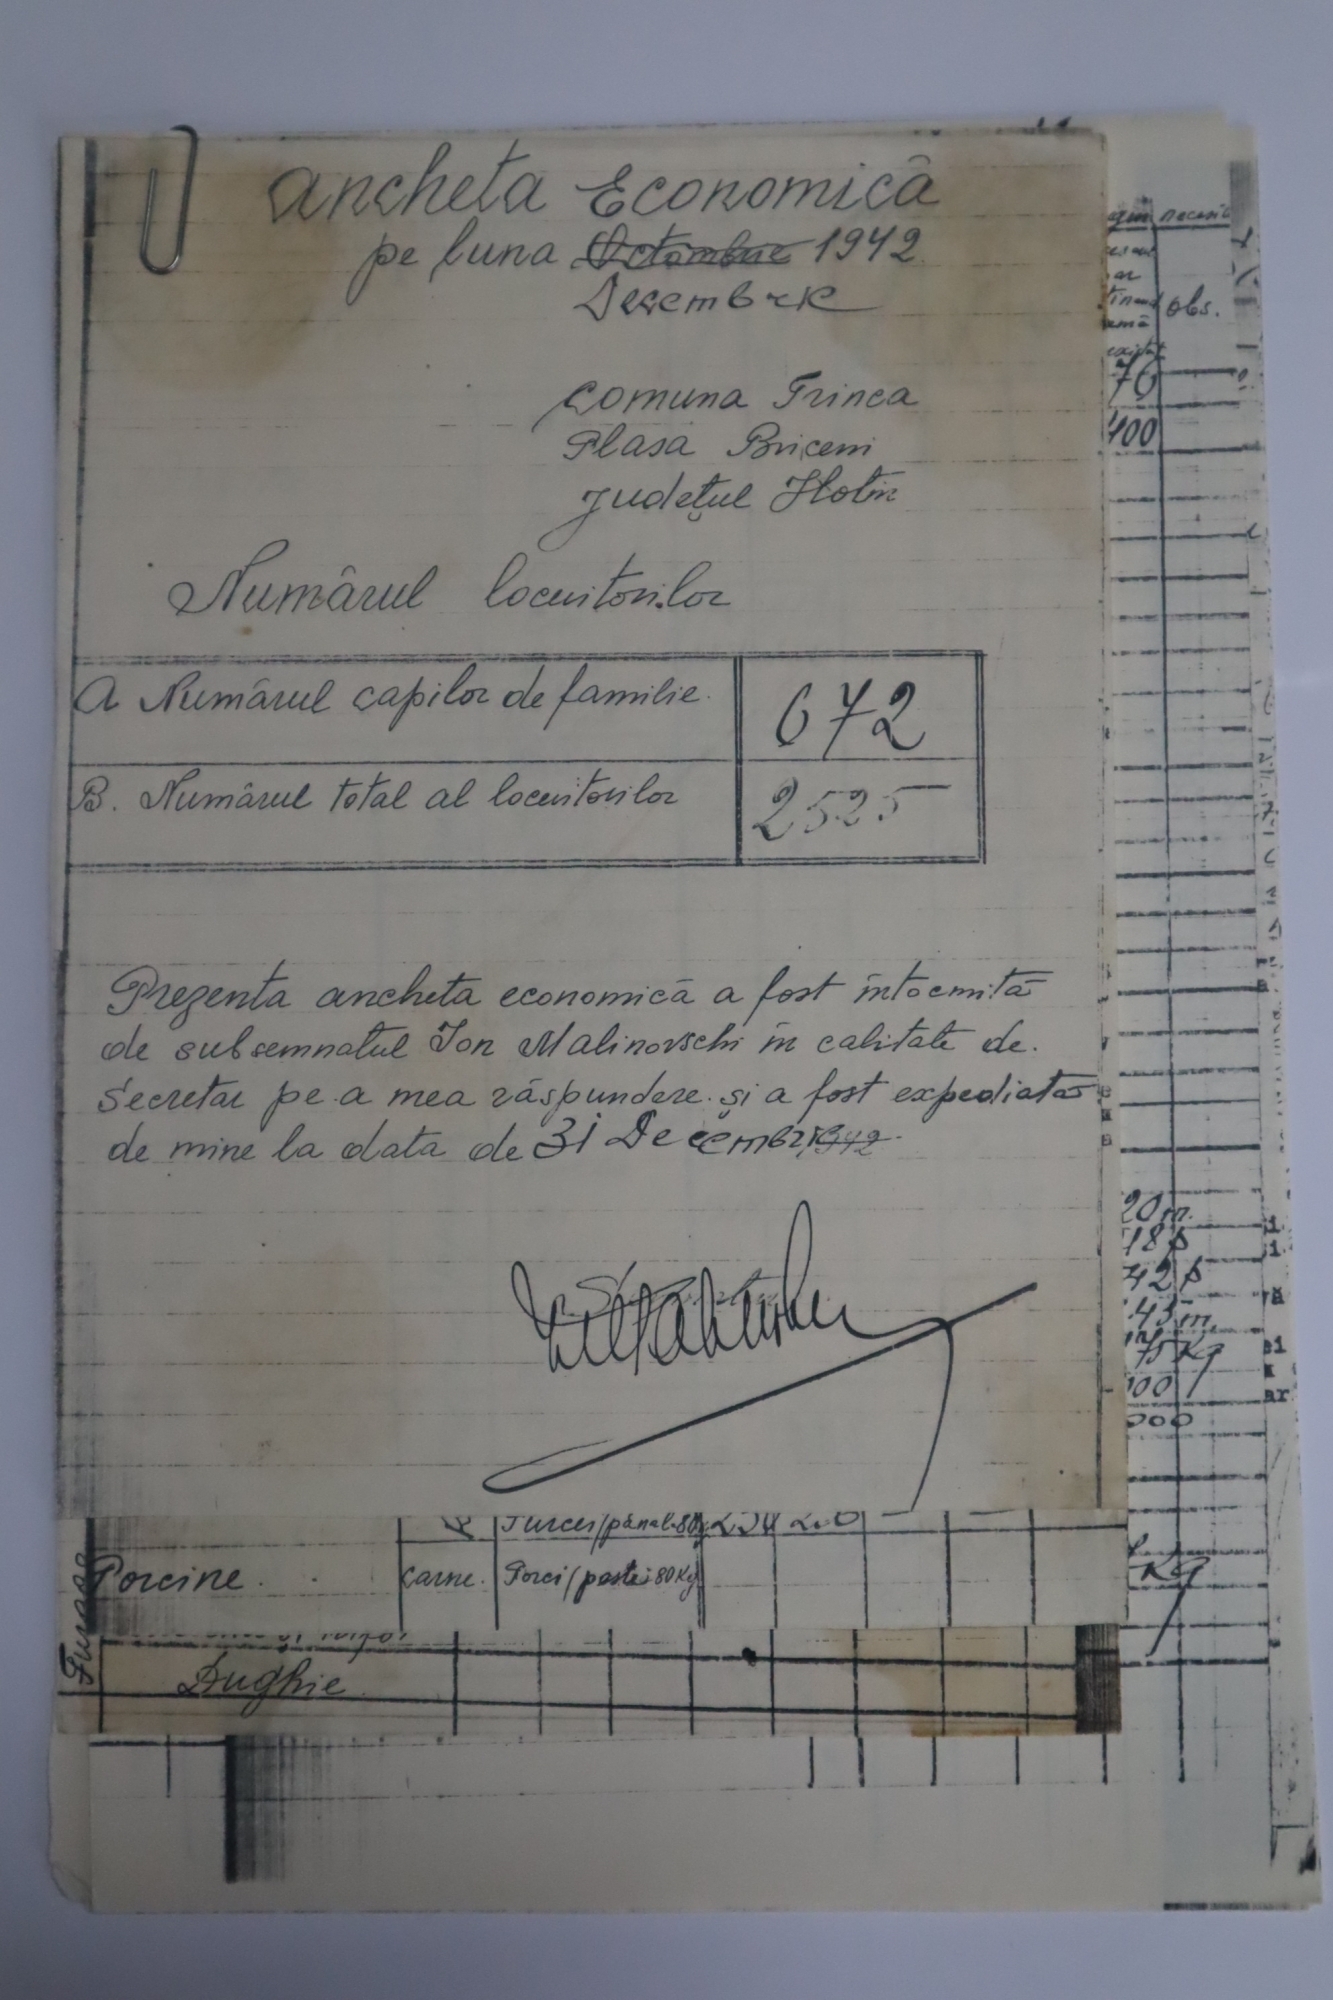 Ancheta Economică
pe luna Octombrie 1942
Decembrie
Comuna Trinca
Plasa Briceni
Județul Hotin
Numărul locuitorilor
A Numărul capilor de familie. 672
B. Numărul total al locuitorilor 2525
Prezenta ancheta economică a fost întocmită
de subsemnatul Ion Malinovschi în calitate de.
Secretar pe a mea răspundere. și a fost expediată
de mine la data de 31 Decembrie 1942.
necesit
obs.
76
400
20 m.
18 p
42 p
43 m.
75 Kg
000
000
Kg
Porcine.
carne. Porci/peste 80 Kg
Dughie